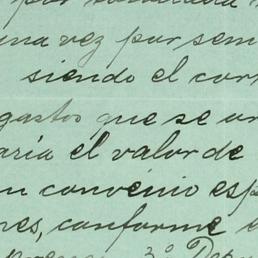 una vez por sem
siendo el corr
gastos que se or
aría el valor de
un convenio esp
res, conforme e
3º Dep